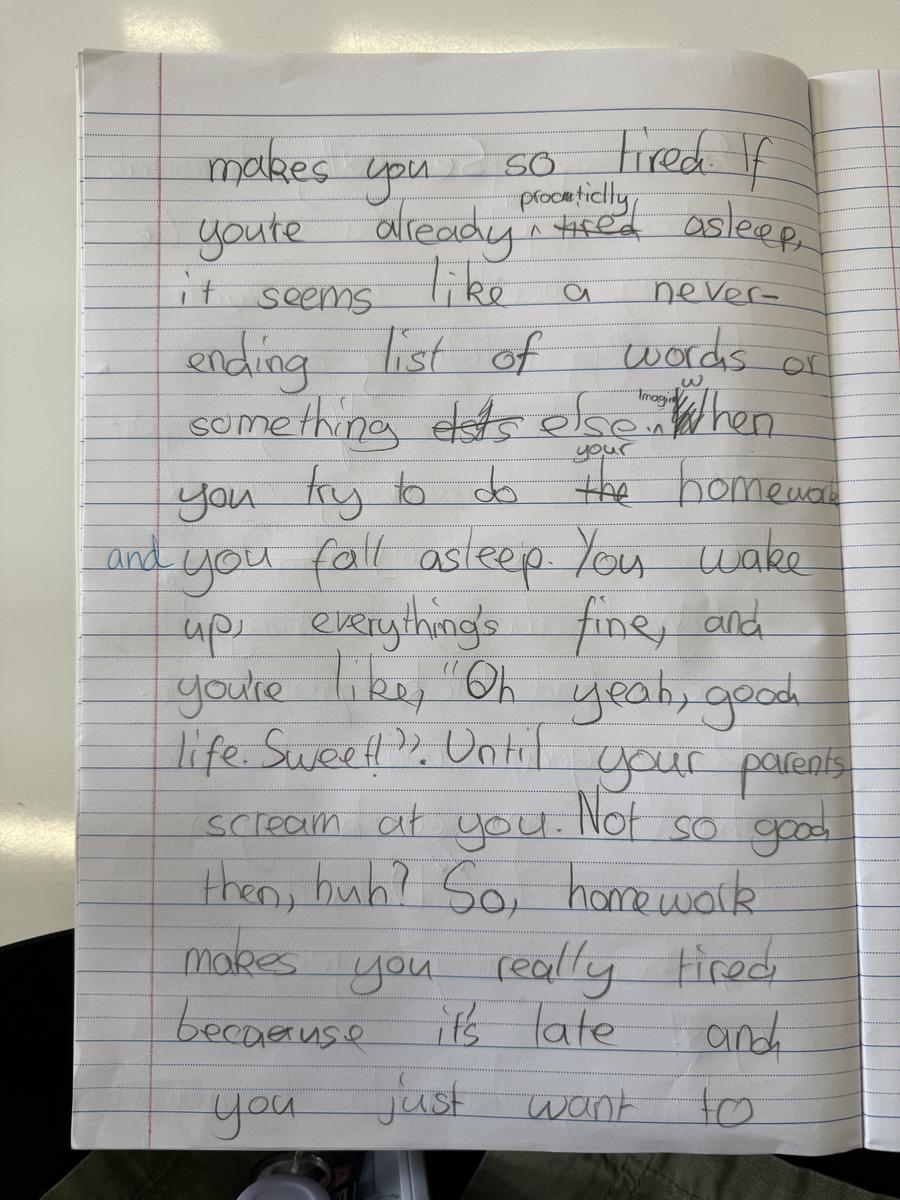 makes you so tired. If
you're already procatictly tired asleep,
it seems like a never-
ending list of words or
something else. Imagine When
you try to do your the homework
and you fall asleep. You wake
up, everything's fine, and
you're like, "Oh yeah, good
life. Sweet!". Until your parents
scream at you. Not so good
then, huh? So, homework
makes you really tired
becaeuse it's late and
you just want to